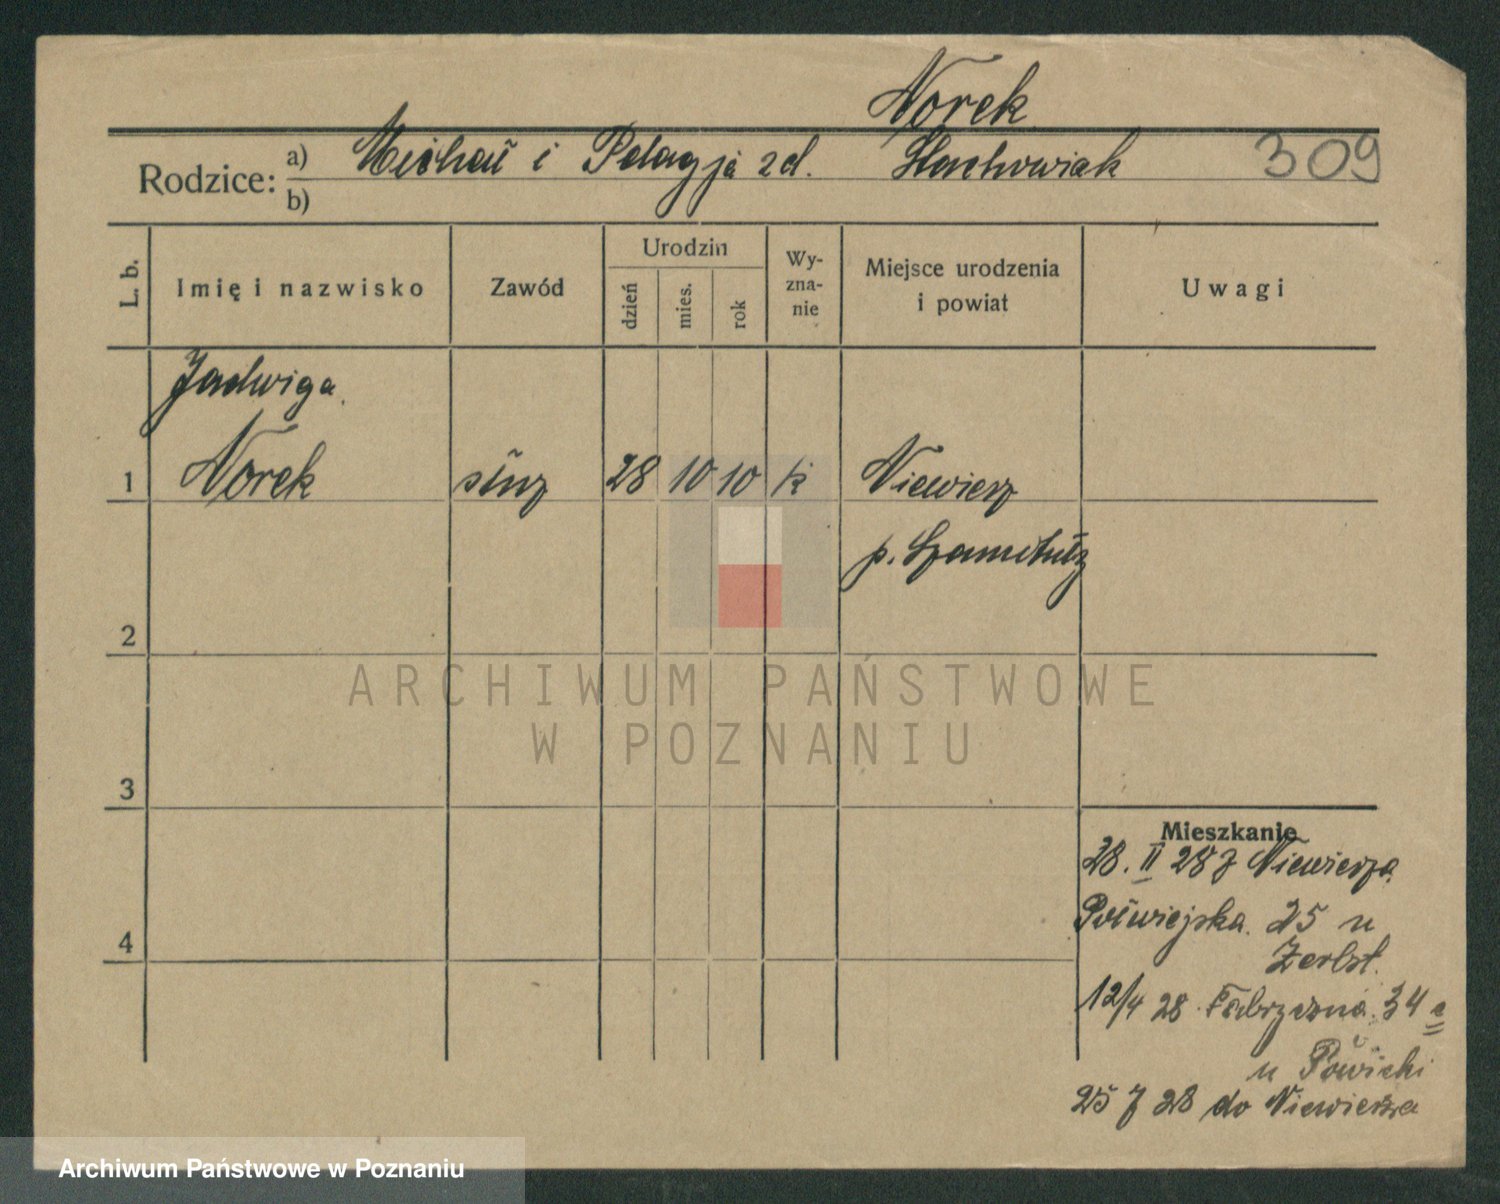 Norek
Rodzice: a) Michał i Pelagja zd. Stachowiak 309
b)
L. b. Imię i nazwisko Zawód Urodzin dzień mies. rok Wy-zna-nie Miejsce urodzenia i powiat Uwagi
Jadwiga
1 Norek służ 28 10 10 k Niewierz
p. Szamotuły
2
ARCHIWUM PAŃSTWOWE
W POZNANIU
3
Mieszkanie
28. II 28 z Niewierza
4 Półwiejska 25 u
Zerbst.
12/4 28 34 a
u
25 7 28 do Niewierza
Archiwum Państwowe w Poznaniu